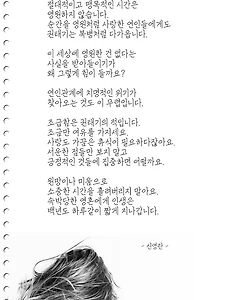 절대적이고 맹목적인 시간은
영원하지 않습니다.
순간을 영원처럼 사랑한 연인들에게도
권태기는 복병처럼 다가옵니다.
이 세상에 영원한 건 없다는
사실을 받아들이기가
왜 그렇게 힘이 들까요?
연인관계에 치명적인 위기가
찾아오는 것도 이 무렵입니다.
조급함은 권태기의 적입니다.
조금만 여유를 가지세요.
사랑도 가끔은 휴식이 필요하다잖아요.
서운한 점들만 보지 말고
긍정적인 것들에 집중하면 어떨까요.
원망이나 미움으로
소중한 시간을 흘려버리지 말아요.
속박당한 영혼에게 인생은
백년도 하루같이 짧게 지나갑니다.
- 신영란 -